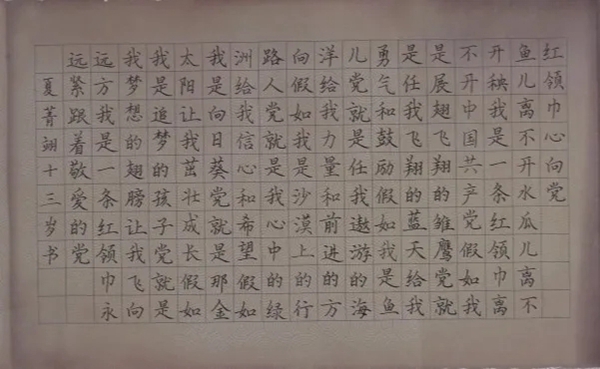 红领巾心向党
鱼儿离不开水瓜儿离不
开秧我是一条红领巾离
不开中国共产党假如我
是展翅飞翔的雏鹰党就
是任我飞翔的蓝天给我
勇气和鼓励假如我是鱼
儿党就是任我遨游的海
洋给我力量和前进的方
向假如我是沙漠上的行
路人党就是我心中的绿
洲给我信心和希望假如
我是向日葵党就是那金
太阳让我茁壮成长假如
我是追梦的孩子党就是
我梦想的翅膀让我飞向
远方我是一条红领巾永
远紧跟着敬爱的党
夏菁翊十三岁书